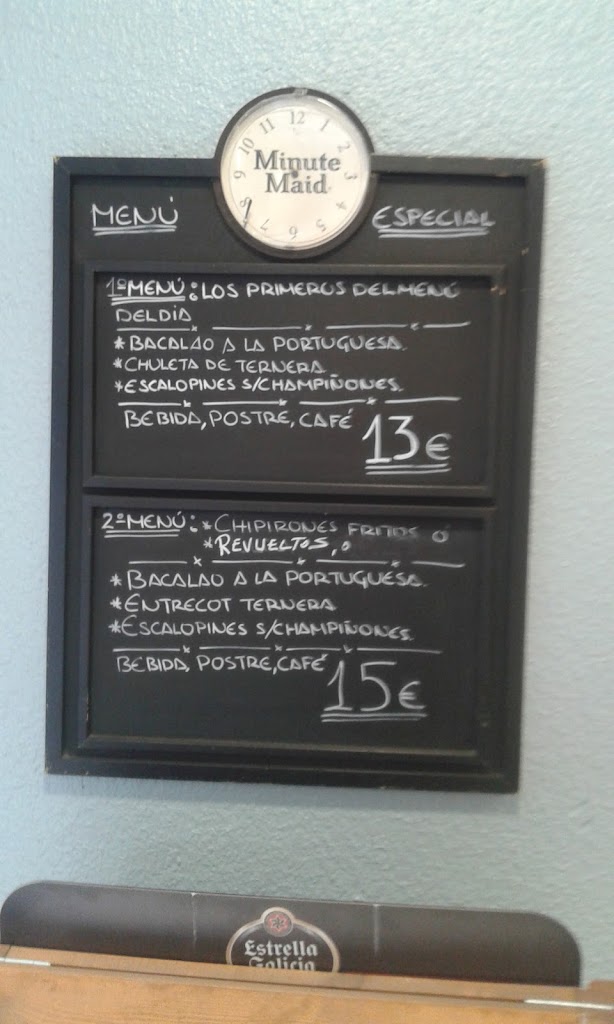 12
11
1
10
2
9
3
8
4
7
5
6
Minute
Maid
MENÚ
ESPECIAL
1º MENÚ: LOS PRIMEROS DEL MENÚ
DEL DÍA
*BACALAO A LA PORTUGUESA.
*CHULETA DE TERNERA.
*ESCALOPINES S/CHAMPIÑONES.
BEBIDA, POSTRE, CAFÉ
13€
2º MENÚ: *CHIPIRONES FRITOS Ó
*REVUELTOS, o
*BACALAO A LA PORTUGUESA.
*ENTRECOT TERNERA
*ESCALOPINES S/CHAMPIÑONES.
BEBIDA, POSTRE, CAFÉ
15€
Estrella
Galicia